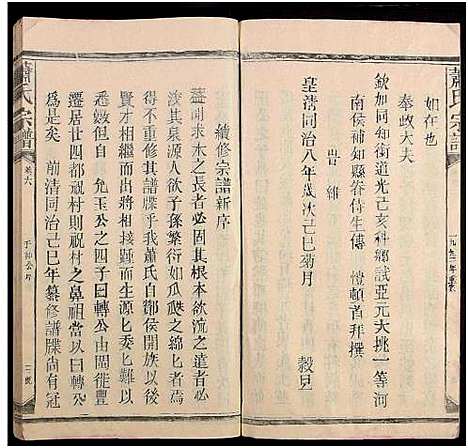 蕭氏宗譜
一九九二年重修
如在也
奉政大夫
欽加同知銜道光己亥科鄉試亞元大挑一等河
南侯補知縣眷侍生傳愷頓首拜撰
皇清同治八年歲次己巳菊月 穀旦
續修宗譜新序
蓋聞求木之長者必固其根本欲流之遠者必
浚其泉源人欲子孫繁衍如瓜瓞之綿匕者焉
得不重修其譜牒乎我蕭氏自酇侯開族以來
賢才相繼而出歷代相踵而生源匕委匕難以
悉數但我 允玉公之四子曰轉公由閩徙豐
居廿四都祝村則祝村之鼻祖當以曰轉公
為是矣 前清同治己巳年纂修譜牒尚有冠
蕭氏宗譜
卷六